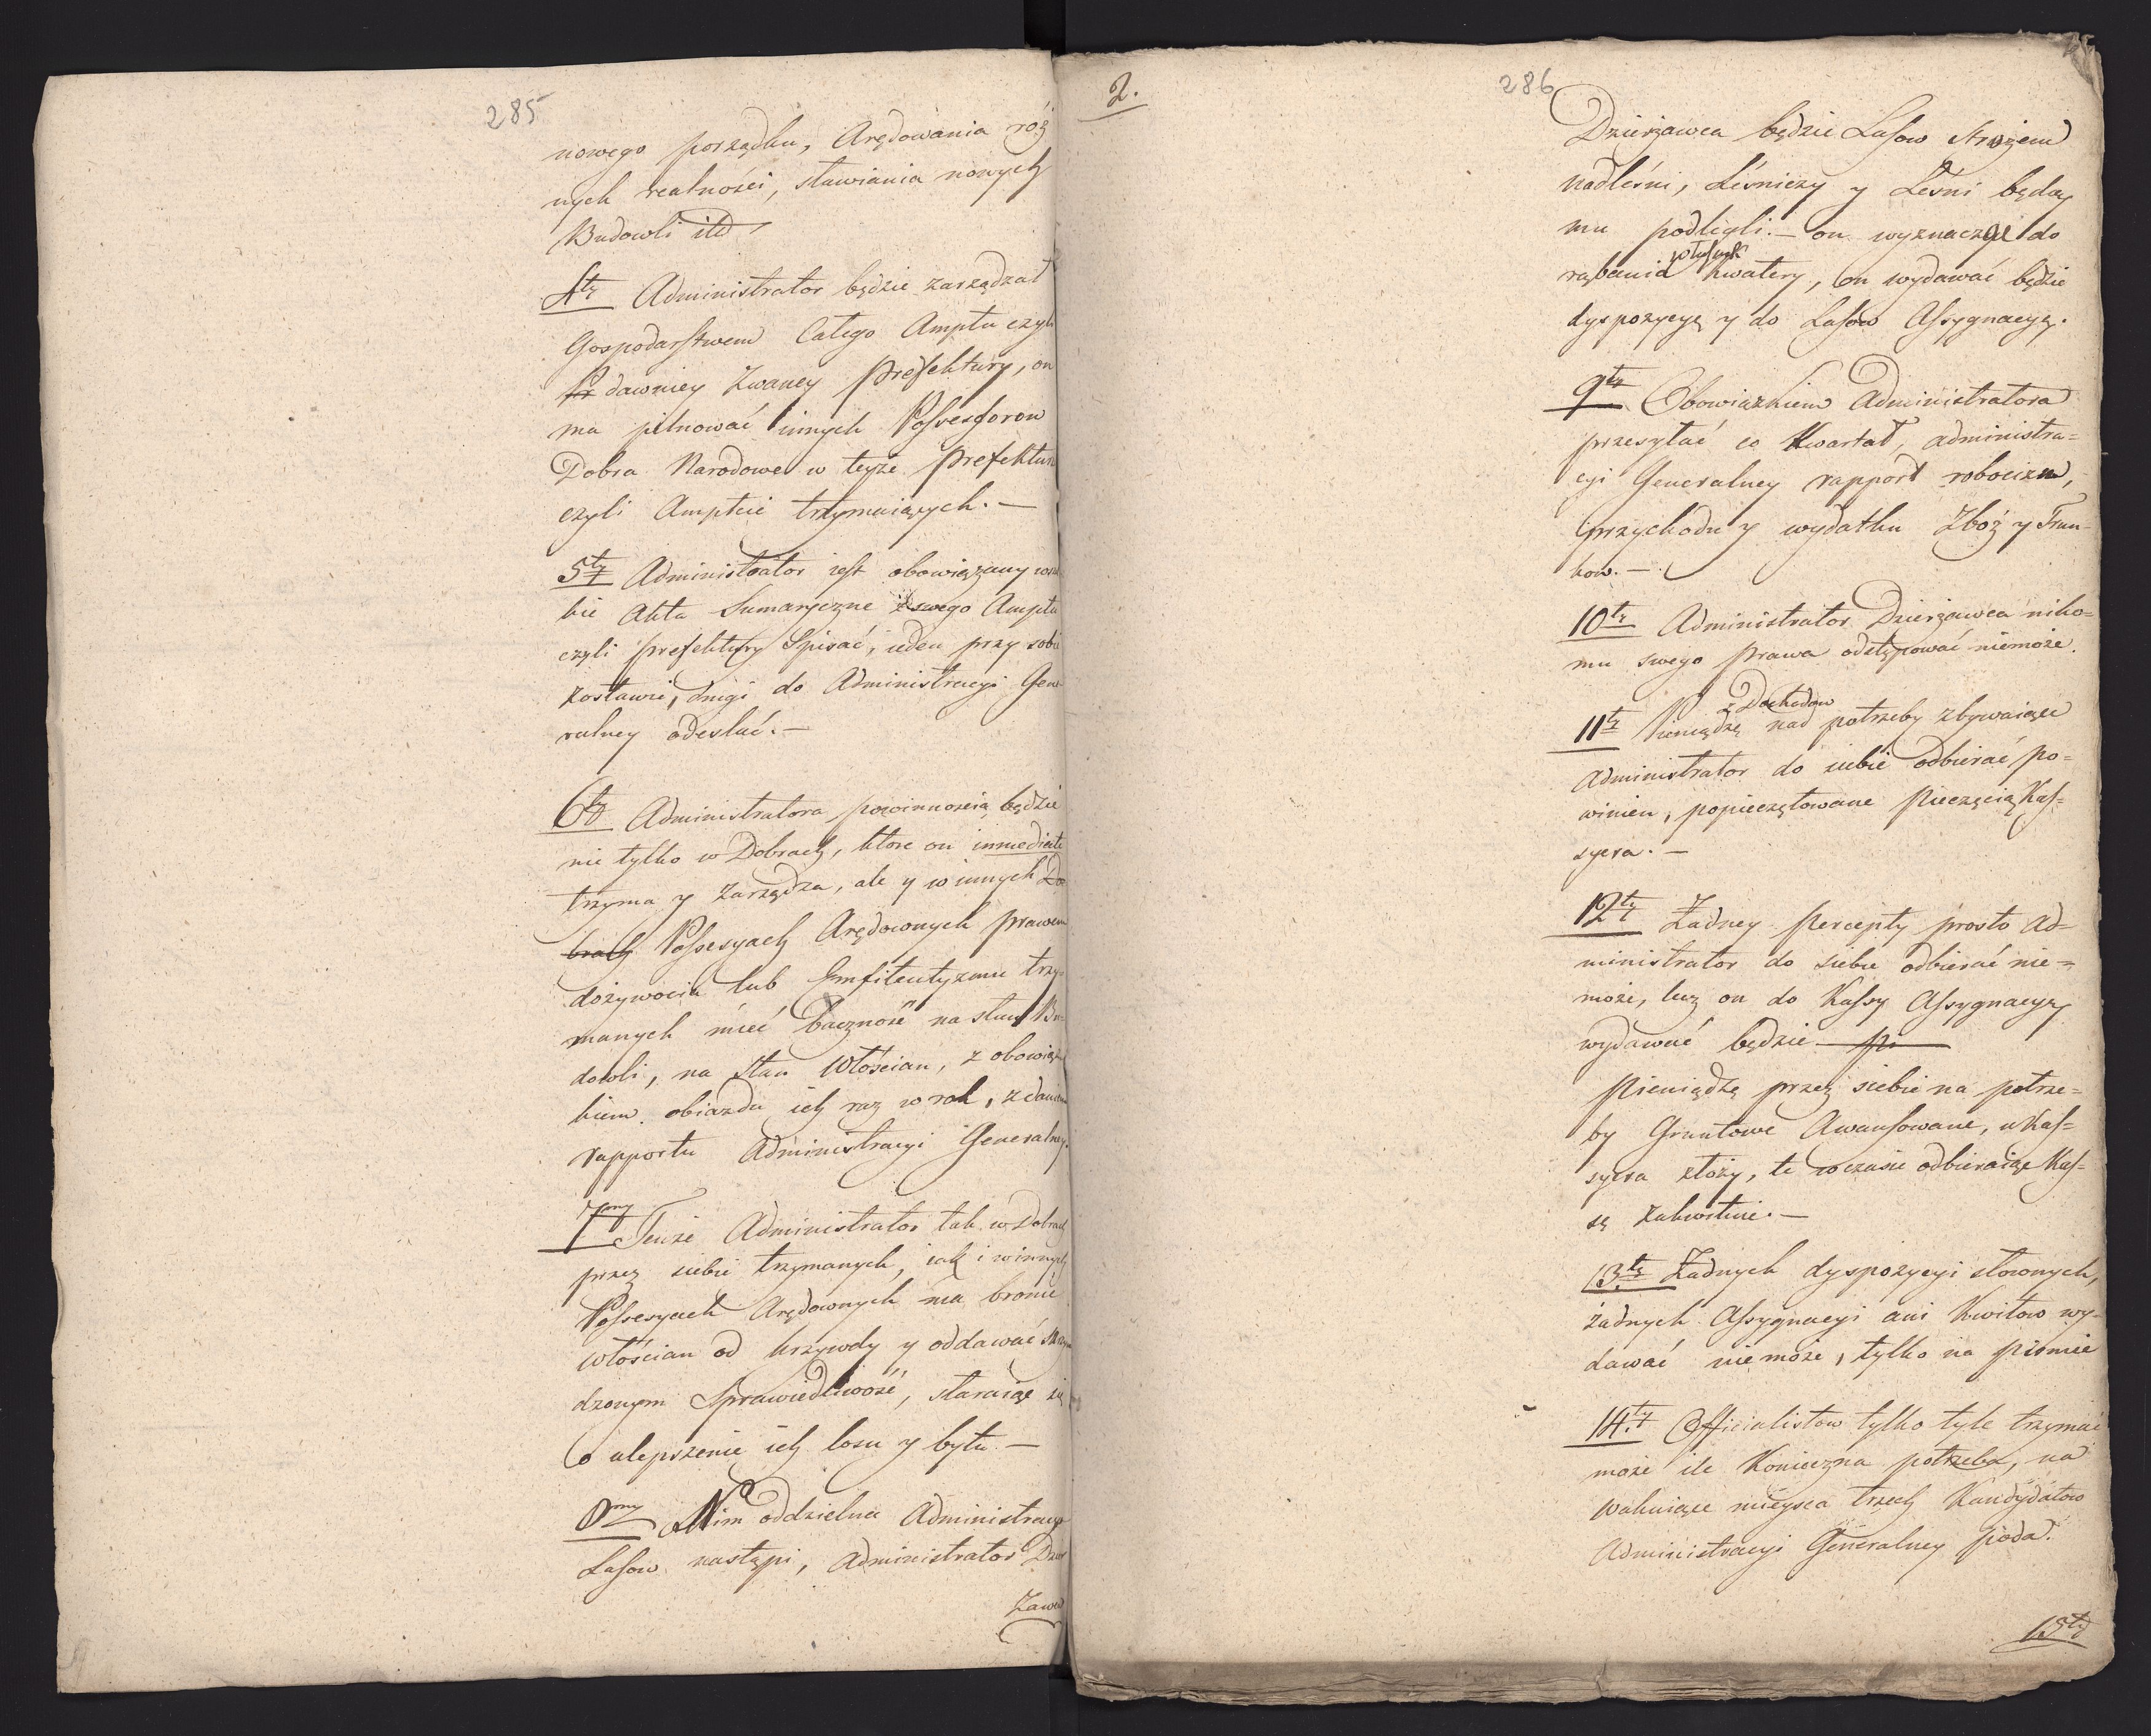 285
nowego porządku, Arędowania róż
nych realności, stawiania nowych
Budowli itd
4ty Administrator będzie zarządzał
Gospodarstwem Całego Amptu czyli
Pr dawniey Zwaney Prefektury, on
ma pilnować innych Possessorow
Dobra Narodowe w teyże Prefektur
czyli Ampcie trzymaiących. —
5ty Administrator iest obowiązany
kie Akta Sumaryczne swego Amptu
czyli prefektury Spisać, ieden przy sobie
zostawić, drugi do Administracyi Gene
ralney odesłać. —
6ty Administratora powinnością będzie
nie tylko w Dobrach, ktore on immediate
trzyma y Zarządza, ale y w innych Do
brach Possesyach Arędownych prawem
dożywocia lub Emfiteutyzmu trzy
manych mieć baczność na stan Bu
dowli, na Stan Włościan, z obowiąz
kiem obiazdu ich raz w rok, z daniem
rapportu Administracyi Generalney.
7my Tenże Administrator tak w Dobrach
przez siebie trzymanych, iak i w innych
Possesyach Arędownych ma bronić
Włościan od krzywdy y oddawać
dzonym Sprawiedliwość, staraiąc się
o ulepszenie ich losu y bytu. —
8my Nim oddzielna Administracya
Lasow nastąpi, Administrator Dzier
żawca
2.
286
Dzierżawca będzie Lasow Stróżem
Nadleśni, Leśniczy y Leśni będą
mu podlegli. — on wyznaczać do
rąbania Kwatery, on wydawać będzie
dyspozycye y do Lasow Assygnacye.
9ty Obowiązkiem Administratora
przesyłać co Kwartał, administra=
cyi Generalney rapport robocizn,
przychodu y wydatku Zboż y Trun=
kow. —
10ty Administrator Dzierżawca niko=
mu swego Prawa odstępować niemoże.
z Dochodow
11ty Pieniądze nad potrzeby zbywaiące
Administrator do siebie odbierać po=
winien, popieczętowane Pieczęcią Kas=
syera. —
12ty Żadney Percepty prosto Ad=
ministrator do siebie odbierać nie=
może, lecz on do Kassy Assygnacye
wydawać będzie pi
Pieniądze przez siebie na potrze=
by Gruntowe Awansowane, u Kas=
syera złoży, te w czasie odbieraiąc Kas=
sę Zakwituie. —
13ty Żadnych dyspozycyi słownych,
żadnych Assygnacyi ani Kwitow wy=
dawać nie może, tylko na pismie
14ty Officialistow tylko tyle trzymać
może ile Konieczna potrzeba, na
wakuiące mieysca trzech Kandydatow
Administracyi Generalney poda.
15ty